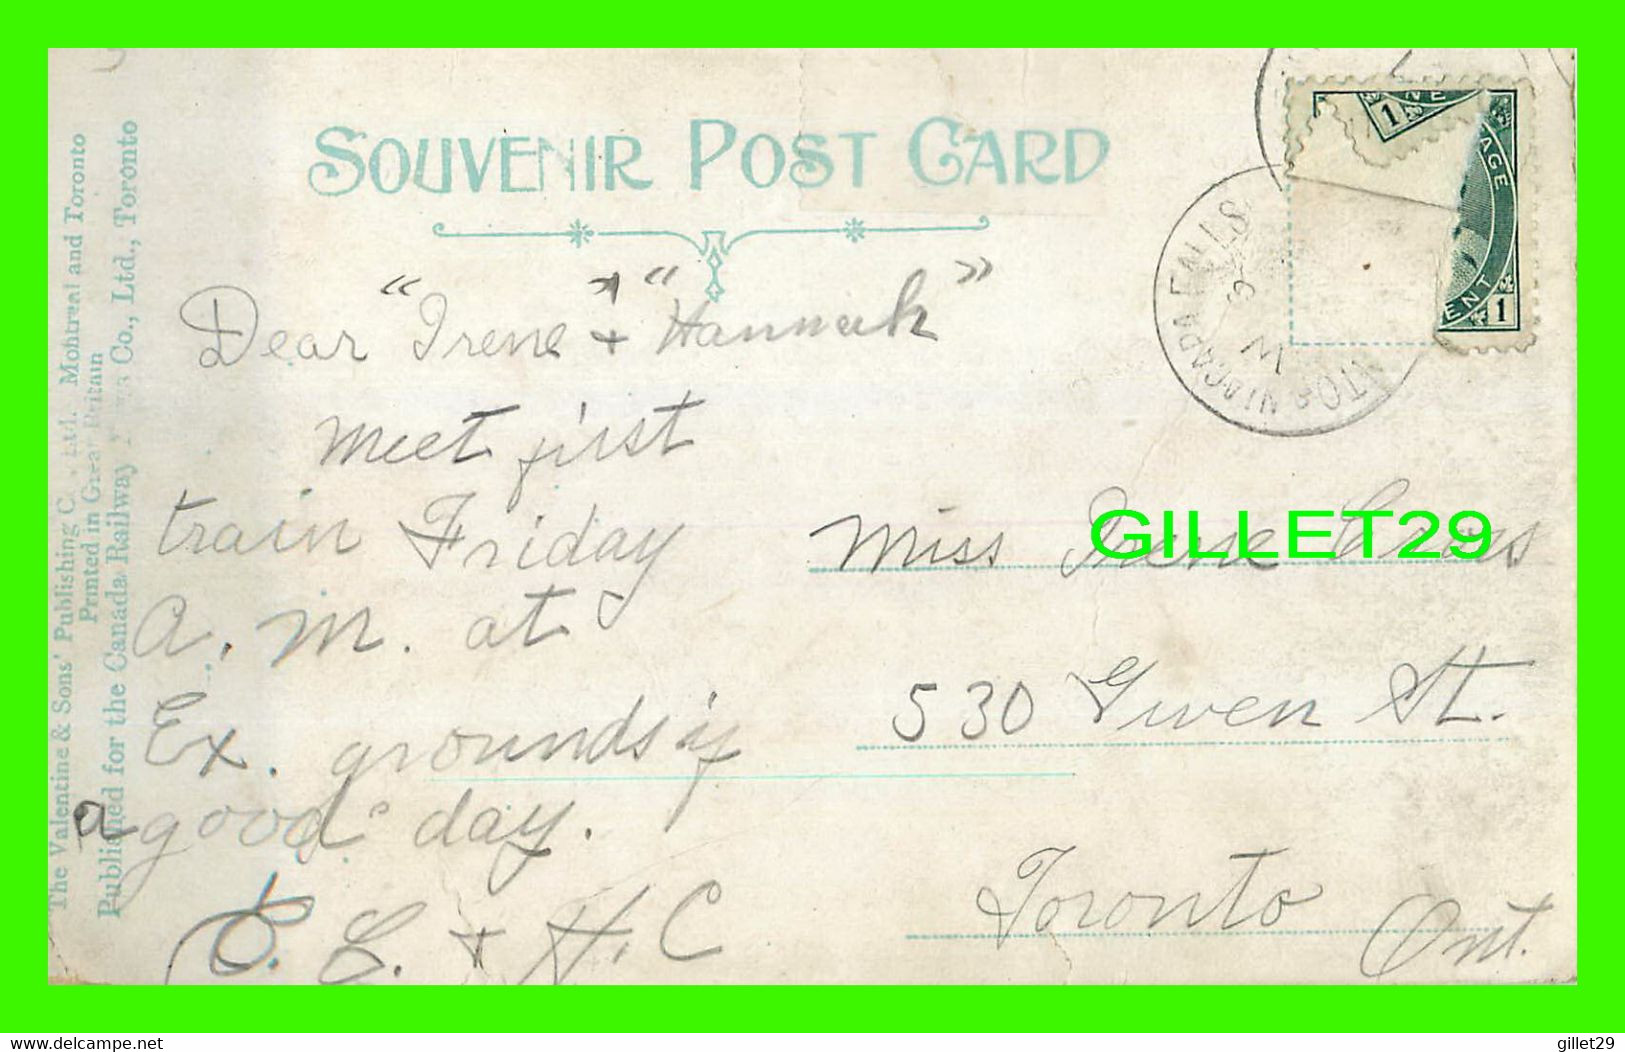 SOUVENIR POST CARD
Dear "Irene" + "Hannah"
meet first
train Friday
a. m. at
Ex. grounds if
a good day.
C. S. + H. C
Miss Irene
530 Given St.
Toronto
Ont.
The Valentine & Sons' Publishing Co., Ltd. Montreal and Toronto
Printed in Great Britain
Published for the Canada Railway News Co., Ltd., Toronto
NIAGARA FALLS
1
AGE
1
GILLET29
www.delcampe.net
gillet29